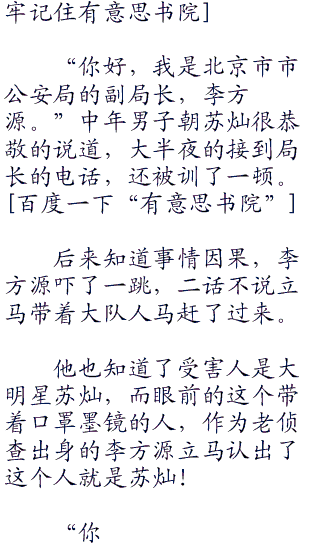 牢记住有意思书院]
“你好，我是北京市市
公安局的副局长，李方
源。”中年男子朝苏灿很恭
敬的说道，大半夜的接到局
长的电话，还被训了一顿。
[百度一下“有意思书院”]
后来知道事情因果，李
方源吓了一跳，二话不说立
马带着大队人马赶了过来。
他也知道了受害人是大
明星苏灿，而眼前的这个带
着口罩墨镜的人，作为老侦
查出身的李方源立马认出了
这个人就是苏灿!
“你